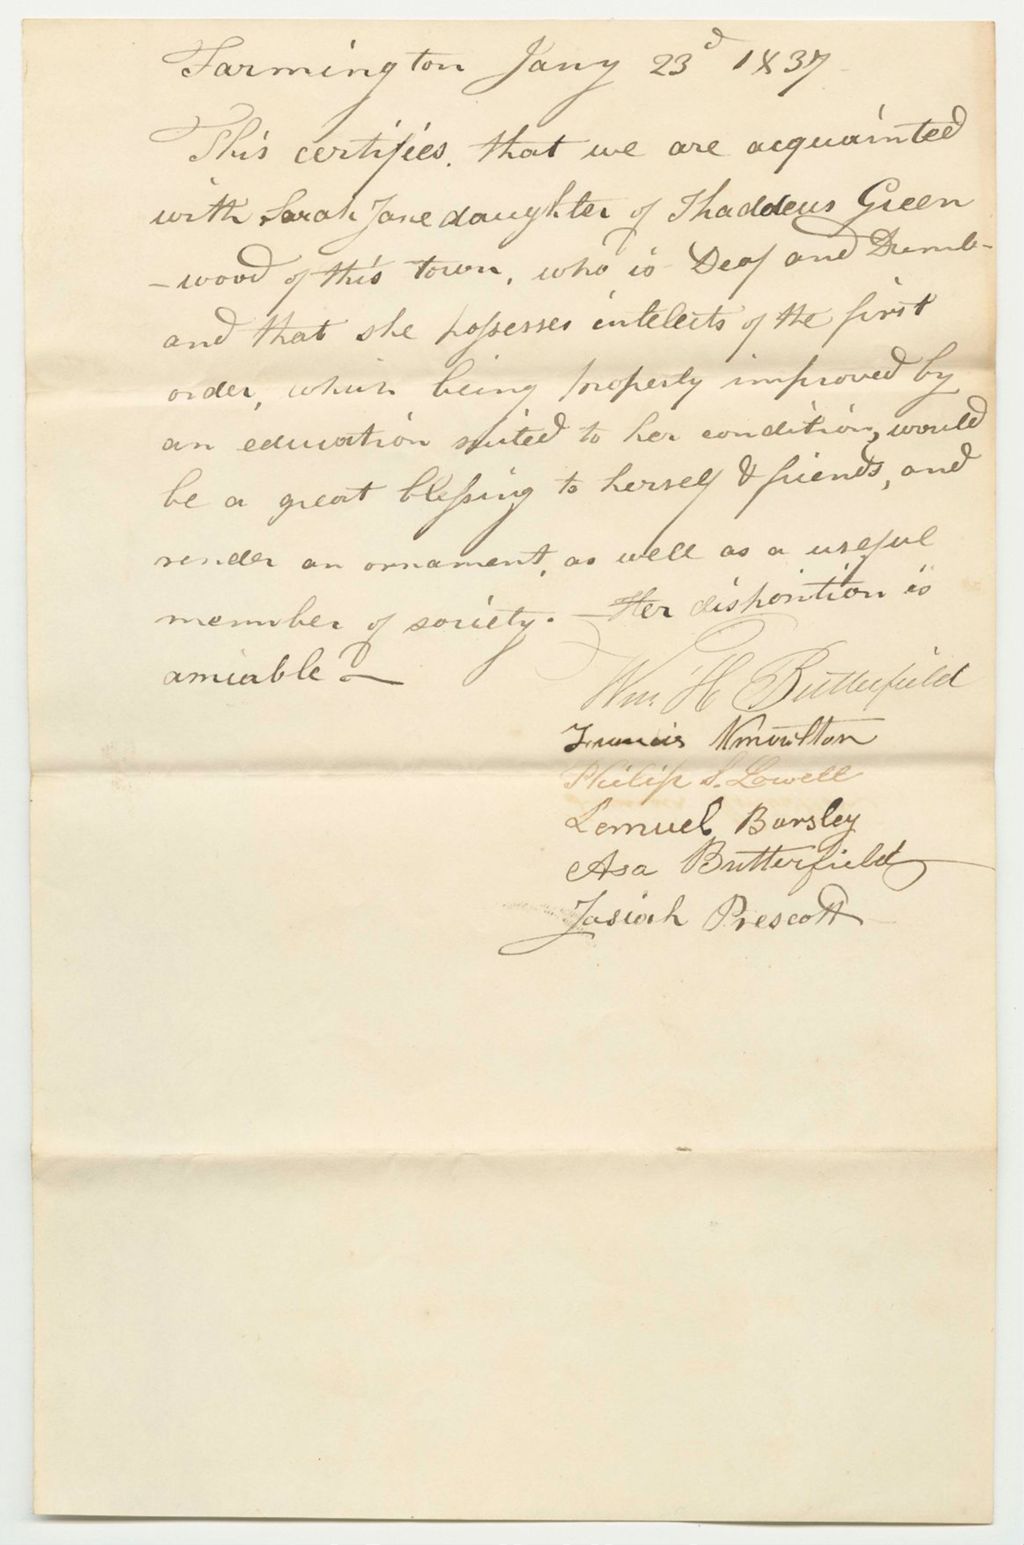 Farmington Jany 23d 1837
This certifies, that we are acquainted
with Sarah Jane daughter of Thaddeus Green
-wood of this town, who is Deaf and Dumb-
and that she possesses intelects of the first
order, which being properly improved by
an education suited to her condition, would
be a great blessing to herself & friends, and
render an ornament, as well as a useful
member of society. - Her disposition is
amiable -
Wm. H Butterfield
Francis Knowlton
Philip S. Lowell
Lemuel Bursley
Asa Butterfield
Josiah Prescott